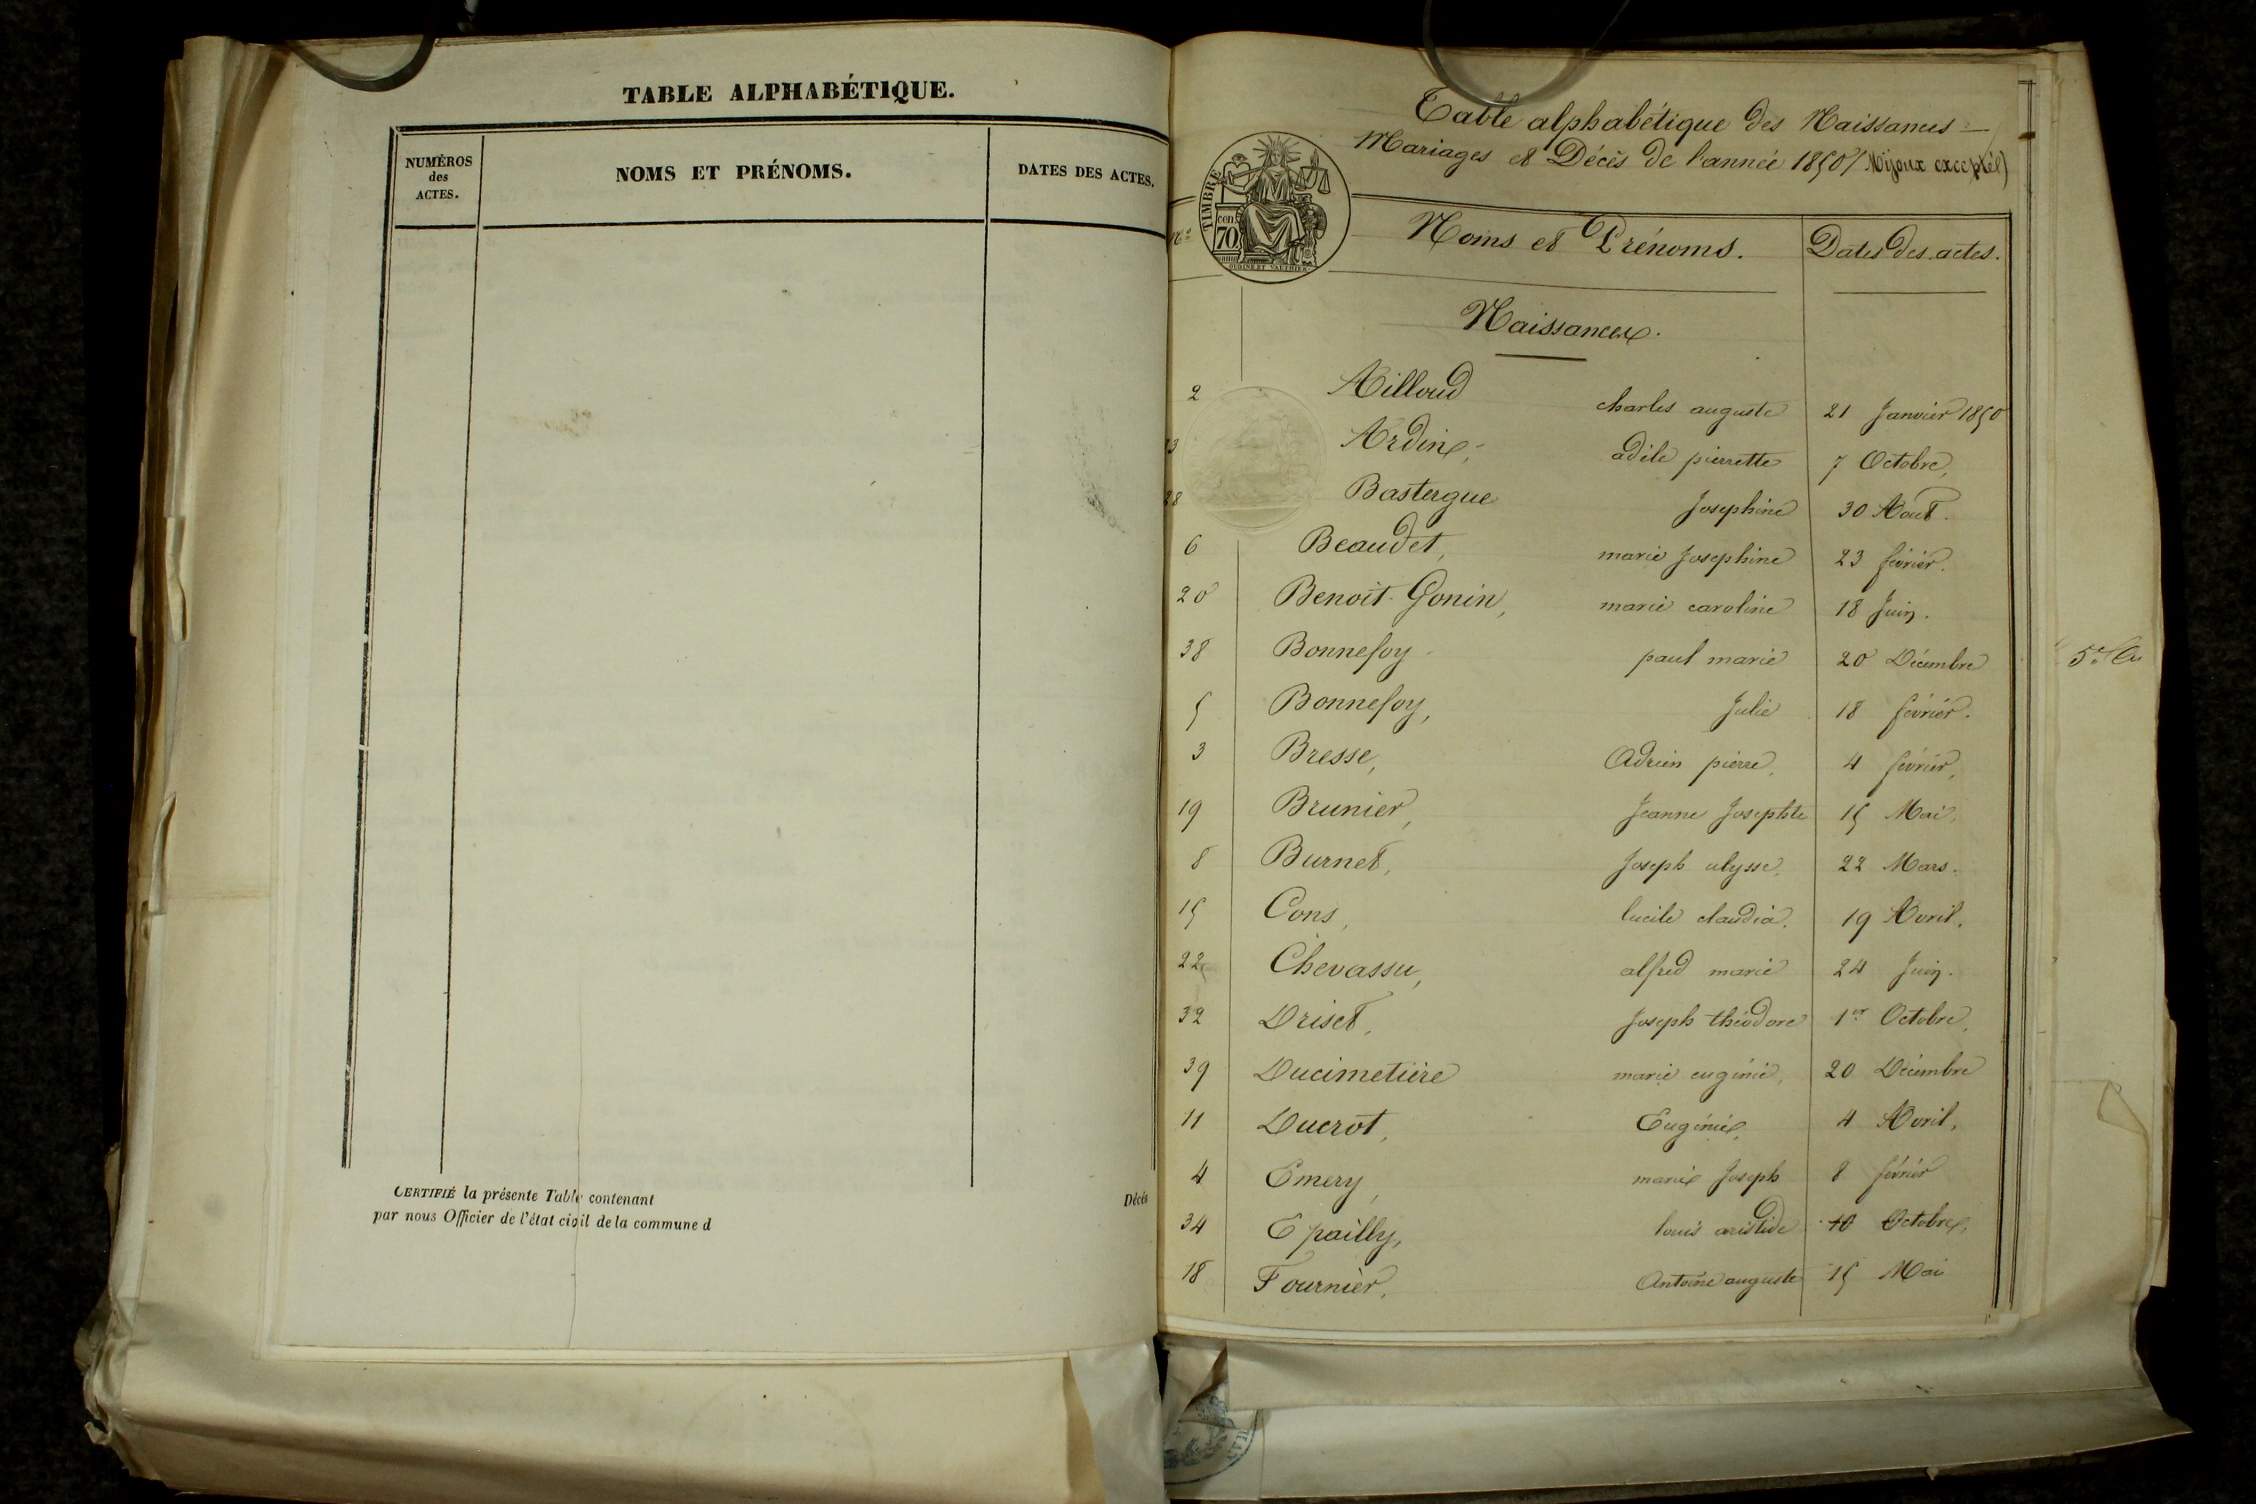 TABLE ALPHABÉTIQUE.
NUMÉROS des ACTES.
NOMS ET PRÉNOMS.
DATES DES ACTES.
CERTIFIÉ la présente Table contenant
Décés
par nous Officier de l'état civil de la commune d
Table alphabétique des Naissances
Mariages et Décès de l'année 1850 (Mijoux excepté)
TIMBRE
70
Noms et Prénoms.
Dates des actes.
Naissances.
2 Ailloud charles auguste 21 Janvier 1850
33 Ardin, adèle pierrette 7 Octobre,
28 Bastergue Josephine 30 Aout.
6 Beaudet, marie Josephine 23 février.
20 Benoit-Gonin, marie caroline 18 Juin.
38 Bonnefoy paul marie 20 Décembre
5 Bonnefoy, Julie 18 février.
3 Bresse, Adrien pierre, 4 février,
19 Brunier, Jeanne Josephte 15 Mai,
8 Burnet, Joseph ulysse, 22 Mars.
15 Cons, lucile claudia. 19 Avril.
22 Chevassu, alfred marie 24 Juin.
32 Driset, Joseph théodore 1er Octobre,
39 Ducimetière marie eugénie, 20 Décembre
11 Ducrot, Eugénie, 4 Avril,
4 Emery, marie Joseph 8 février
34 Epailly, louis aristide 10 Octobre,
18 Fournier, Antoine auguste 15 Mai